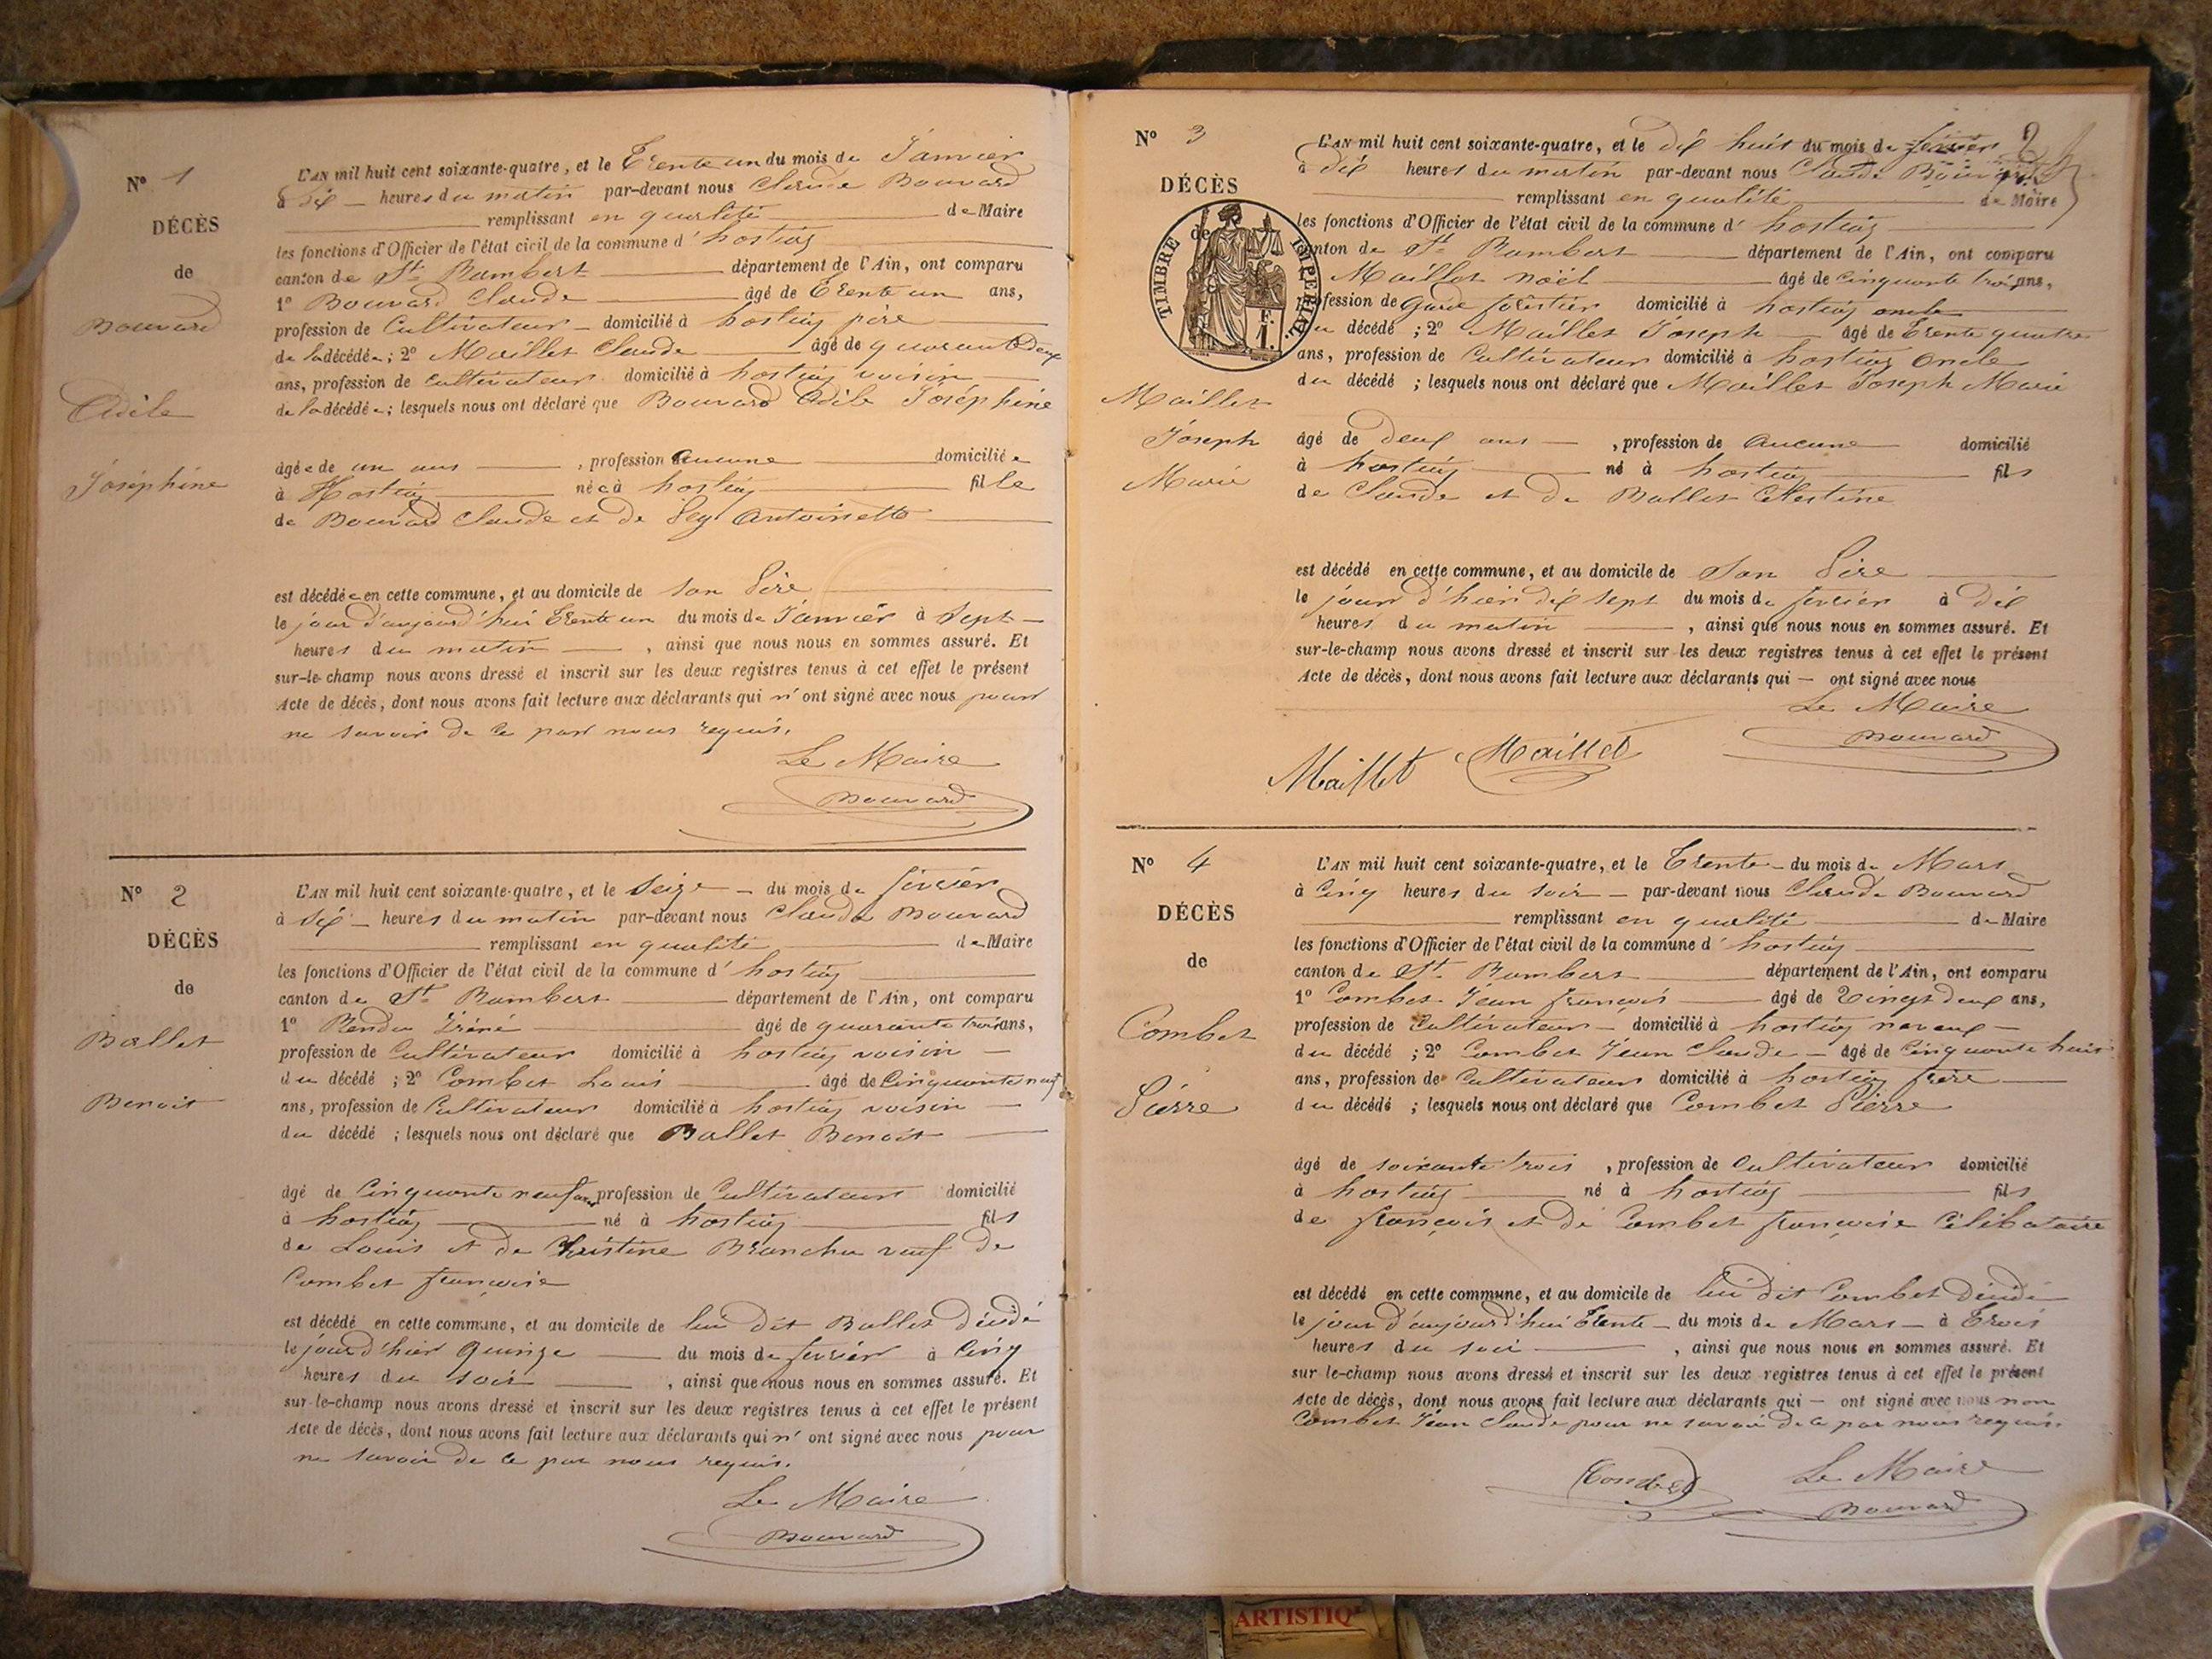 N° 1
DÉCÈS
de
Bouvard
Adèle
Joséphine
L'AN mil huit cent soixante-quatre, et le Trente un du mois de Janvier
à dix heures du matin par-devant nous Claude Bouvard
remplissant en qualité de Maire
les fonctions d'Officier de l'état civil de la commune d'hostiaz
canton de St Rambert département de l'Ain, ont comparu
1° Bouvard Claude âgé de Trente un ans,
profession de Cultivateur domicilié à hostiaz père
de la décédée ; 2° Maillet Claude âgé de quarante deux
ans, profession de cultivateur domicilié à hostiaz voisin
de la décédée ; lesquels nous ont déclaré que Bouvard Adèle Joséphine
âgée de un ans , profession Aucune domiciliée
à Hostiaz née à hostiaz fille
de Bouvard Claude et de Antoinette
est décédée en cette commune, et au domicile de son Père
le jour d'aujourd'hui Trente un du mois de Janvier à Sept
heures du matin , ainsi que nous nous en sommes assuré. Et
sur-le-champ nous avons dressé et inscrit sur les deux registres tenus à cet effet le présent
Acte de décès, dont nous avons fait lecture aux déclarants qui n'ont signé avec nous pour
ne savoir de ce par nous requis.
Le Maire
Bouvard
N° 2
DÉCÈS
de
Ballet
Benoit
L'AN mil huit cent soixante-quatre, et le Seize du mois de février
à dix heures du matin par-devant nous Claude Bouvard
remplissant en qualité de Maire
les fonctions d'Officier de l'état civil de la commune d'hostiaz
canton de St Rambert département de l'Ain, ont comparu
1° Bendu Iréné âgé de quarante trois ans,
profession de Cultivateur domicilié à hostiaz voisin
du décédé ; 2° Combet Louis âgé de Cinquante neuf
ans, profession de Cultivateur domicilié à hostiaz voisin
du décédé ; lesquels nous ont déclaré que Ballet Benoit
âgé de Cinquante neuf ans profession de Cultivateur domicilié
à hostiaz né à hostiaz fils
de Louis et de Christine Branche veuf de
Combet françoise
est décédé en cette commune, et au domicile de lui dit Ballet décédé
le jour d'hier Quinze du mois de février à Cinq
heures du soir , ainsi que nous nous en sommes assuré. Et
sur-le-champ nous avons dressé et inscrit sur les deux registres tenus à cet effet le présent
Acte de décès, dont nous avons fait lecture aux déclarants qui n'ont signé avec nous pour
ne savoir de ce par nous requis.
Le Maire
Bouvard
2
N° 3
DÉCÈS
de
TIMBRE IMPÉRIAL
F.
1.
Maillet
Joseph
Marie
L'AN mil huit cent soixante-quatre, et le dix huit du mois de février
à dix heures du matin par-devant nous Claude Bouvard
remplissant en qualité de Maire
les fonctions d'Officier de l'état civil de la commune d'hostiaz
canton de St Rambert département de l'Ain, ont comparu
Maillet Noël âgé de cinquante trois ans,
profession de Garde forestier domicilié à hostiaz oncle
du décédé ; 2° Maillet Joseph âgé de Trente quatre
ans, profession de Cultivateur domicilié à hostiaz Oncle
du décédé ; lesquels nous ont déclaré que Maillet Joseph Marie
âgé de deux ans , profession de Aucune domicilié
à hostiaz né à hostiaz fils
de Claude et de Ballet Célestine
est décédé en cette commune, et au domicile de Son Père
le jour d'hier dix sept du mois de février à dix
heures du matin , ainsi que nous nous en sommes assuré. Et
sur-le-champ nous avons dressé et inscrit sur les deux registres tenus à cet effet le présent
Acte de décès, dont nous avons fait lecture aux déclarants qui ont signé avec nous
Le Maire
Bouvard
Maillet Maillet
N° 4
DÉCÈS
de
Combet
Pierre
L'AN mil huit cent soixante-quatre, et le Trente du mois de Mars
à Cinq heures du soir par-devant nous Claude Bouvard
remplissant en qualité de Maire
les fonctions d'Officier de l'état civil de la commune d'hostiaz
canton de St Rambert département de l'Ain, ont comparu
1° Combet Jean françois âgé de Vingt deux ans,
profession de Cultivateur domicilié à hostiaz neveux
du décédé ; 2° Combet Jean Claude âgé de Cinquante huit
ans, profession de Cultivateur domicilié à hostiaz frère
du décédé ; lesquels nous ont déclaré que Combet Pierre
âgé de soixante trois , profession de Cultivateur domicilié
à hostiaz né à hostiaz fils
de françois et de Combet françoise Célibataire
est décédé en cette commune, et au domicile de lui dit Combet décédé
le jour d'aujourd'hui Trente du mois de Mars à Trois
heures du soir , ainsi que nous nous en sommes assuré. Et
sur-le-champ nous avons dressé et inscrit sur les deux registres tenus à cet effet le présent
Acte de décès, dont nous avons fait lecture aux déclarants qui ont signé avec nous non
Combet Jean Claude pour ne savoir de ce par nous requis.
Combet Le Maire
Bouvard
ARTISTIQ